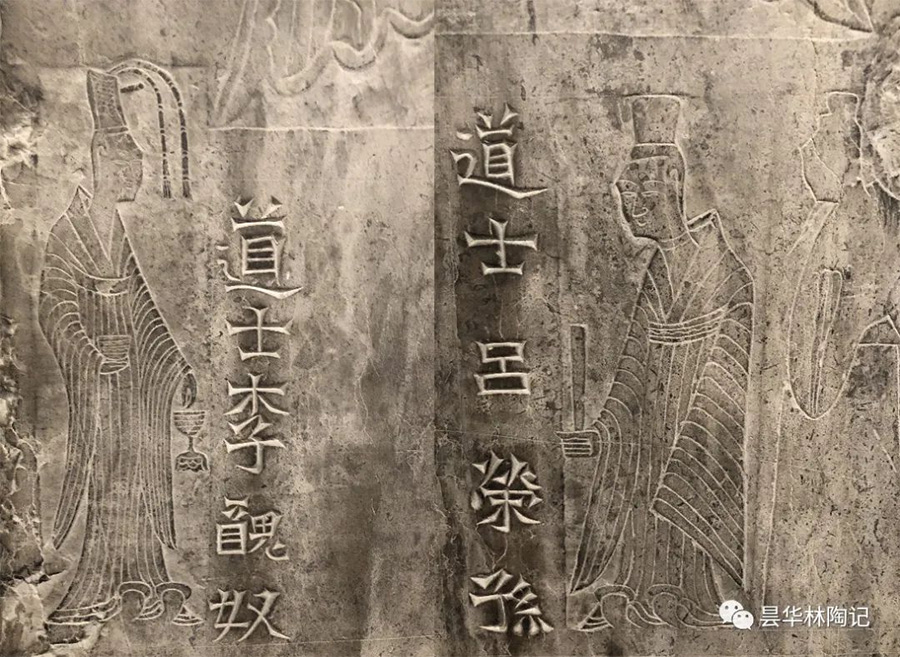 道士李醜奴
道士呂榮孫
昙华林陶记